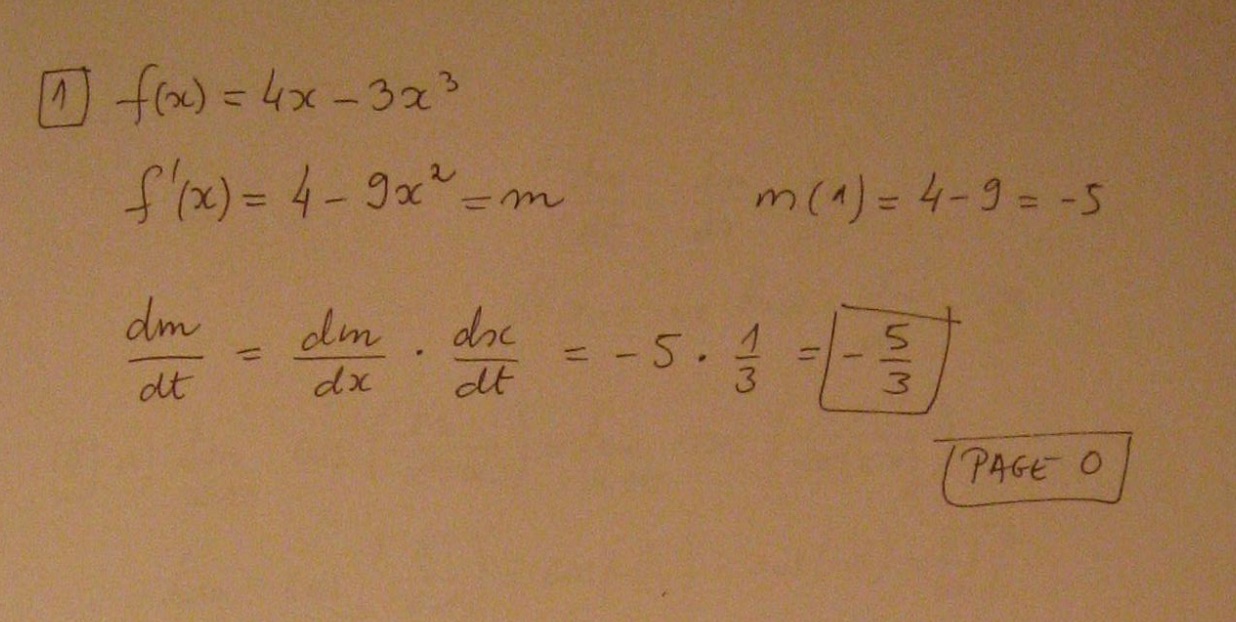 1 f(x) = 4x - 3x³
f'(x) = 4 - 9x² = m m(1) = 4 - 9 = -5
dm/dt = dm/dx · dx/dt = -5 · 1/3 = -5/3
PAGE 0